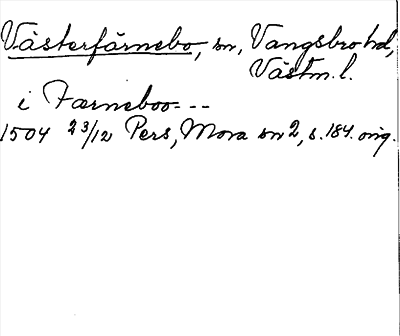 Västerfärnebo, sn, Vangsbro hd,
Västm. l.
i Farneboo - - -
1504 23/12 Pers, Mora sn 2, s. 184. orig.